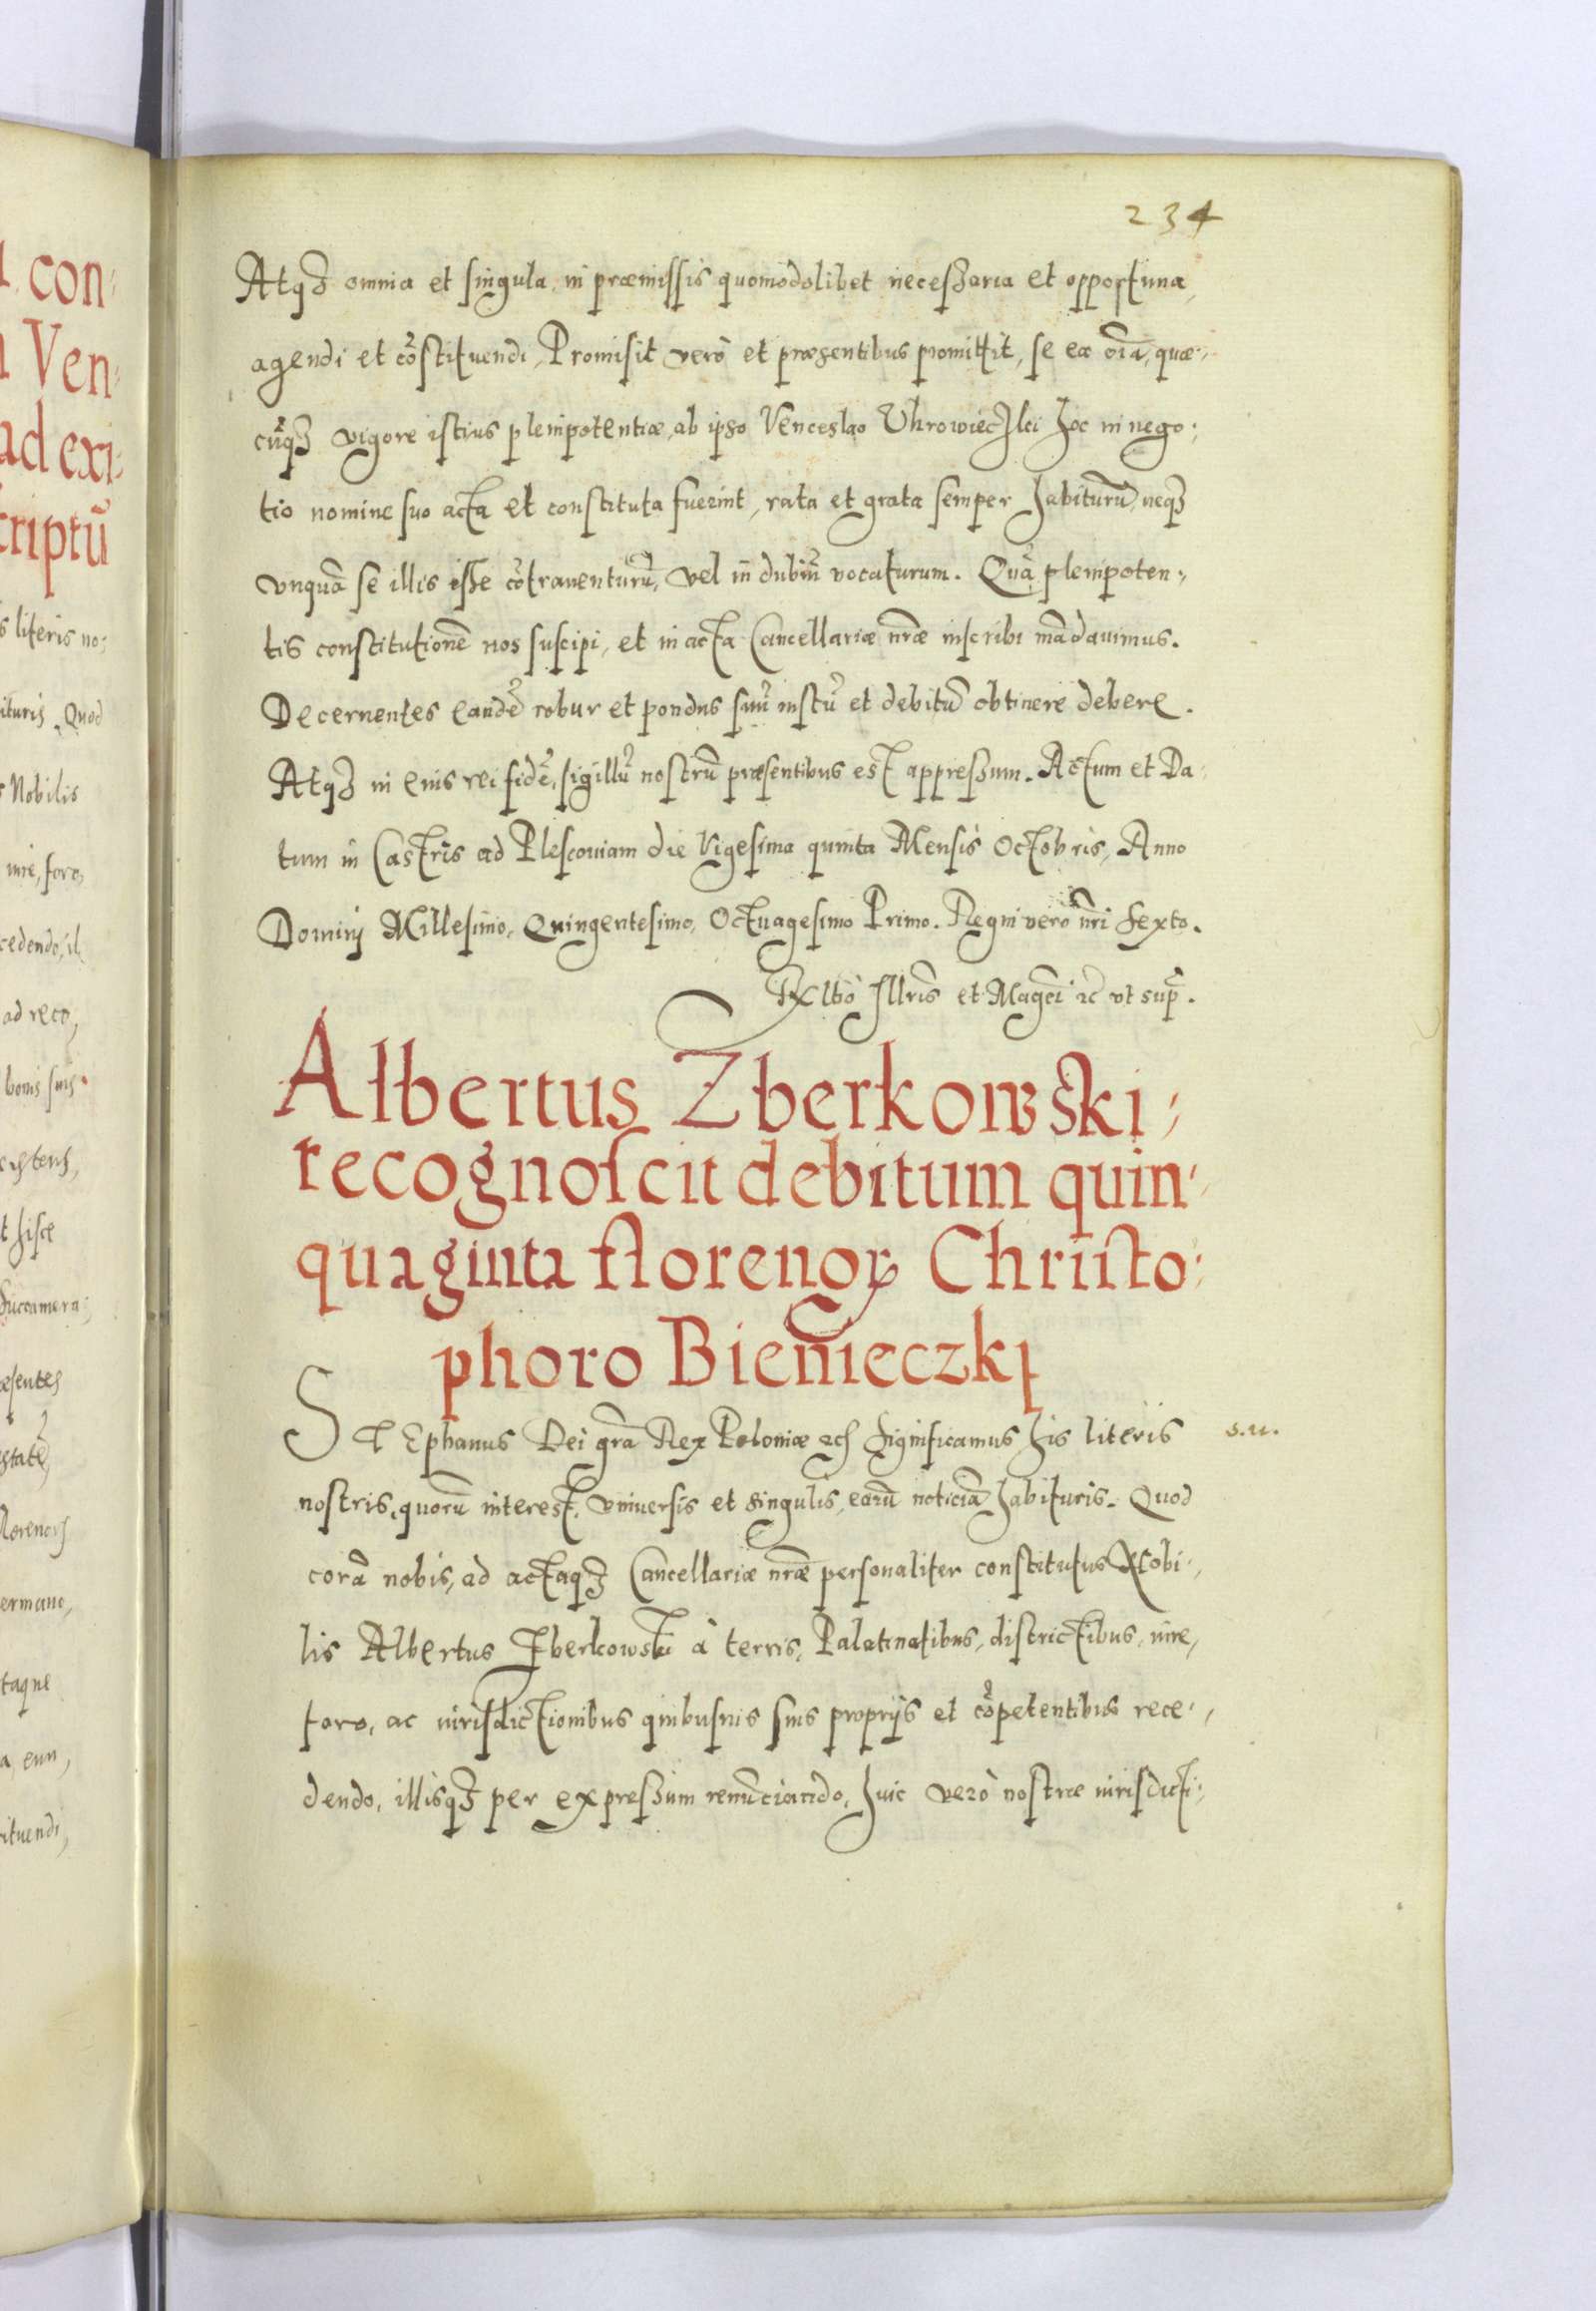 234
Atqз omnia et singula, in præmissis quomodolibet necessaria et opportuna,
agendi et cõstituendi, Promisit verò et præsentibus promittit, se ea oĩa, quæ-
cũqз vigore istius plenipotentiæ, ab ipso Venceslao Vhrowieczki hoc in nego-
tio nomine suo acta et constituta fuerint, rata et grata semper habiturũ, neqз
vnquã se illis esse cõtrauenturũ, vel in dubiũ vocaturum. Quã plenipoten-
tis constitutionẽ nos suscipi, et in acta Cancellariæ nr̃æ inscribi mãdauimus.
Decernentes eandẽ robur et pondus suũ iustũ et debitũ obtinere debere.
Atqз in eius rei fidẽ, sigillũ nostrũ præsentibus est appressum. Actum et Da-
tum in Castris ad Plescouiam die Vigesima quinta Mensis Octobris, Anno
Dominj Millesimo, Quingentesimo, Octuagesimo Primo. Regni verò nr̃i sexto.
Rltõ Illris̃ et Magcĩ ꝛc̃ vt sup̃.
Albertus Zberkowski
recognoſcit debitum quin-
quaginta florenoꝝ Chriſto-
phoro Bienieczkj
STEphanus Dei grã Rex Poloniæ ꝛcз Significamus his literis
s.u.
nostris, quorũ interest, vniuersis et singulis, earũ noticiã habituris. Quod
corã nobis, ad actaqз Cancellariæ nr̃æ personaliter constitutus Nobi-
lis Albertus Zberkowski à terris, Palatinatibus, districtibus, iure,
foro, ac iurisdictionibus quibusuis suis proprijs et cõpetentibus rece-
dendo, illisqз per expressum renũciando, huic verò nostræ iurisdicti-